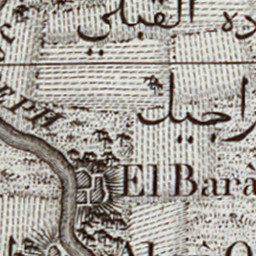 ده القبلي
EPH
راجيل
El Barà